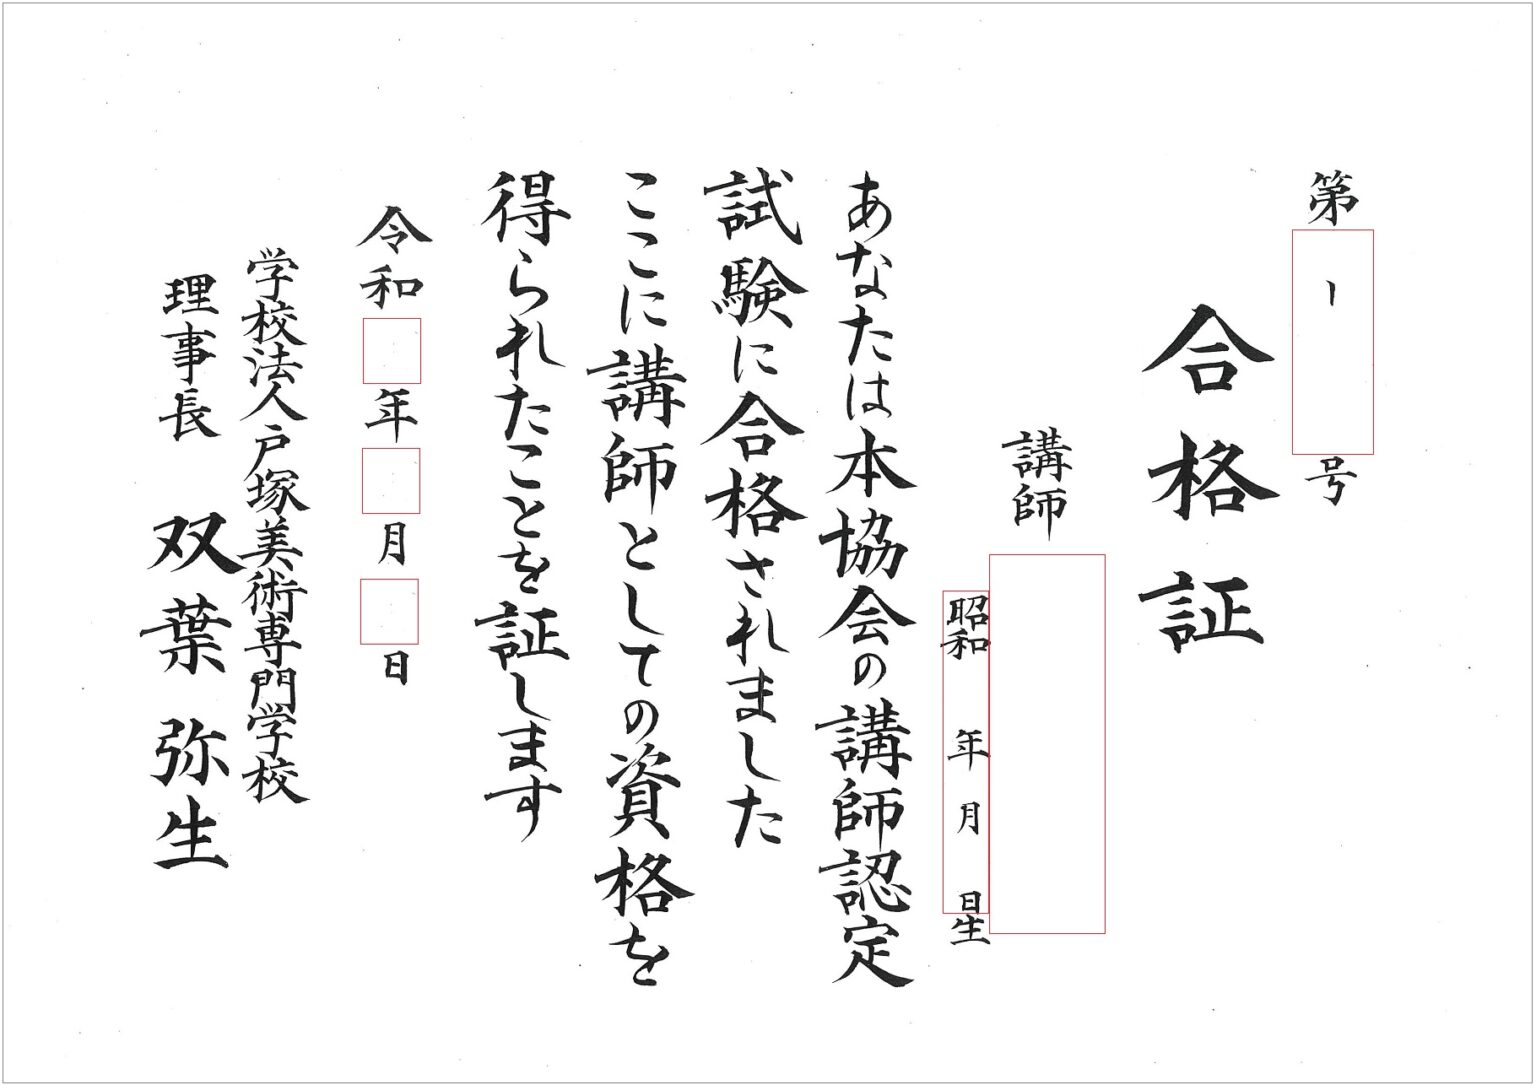 第 ー 号
合格証
講師
昭和 年 月 日生
あなたは本協会の講師認定
試験に合格されました
ここに講師としての資格を
得られたことを証します
令和 年 月 日
学校法人戸塚美術専門学校
理事長 双葉弥生